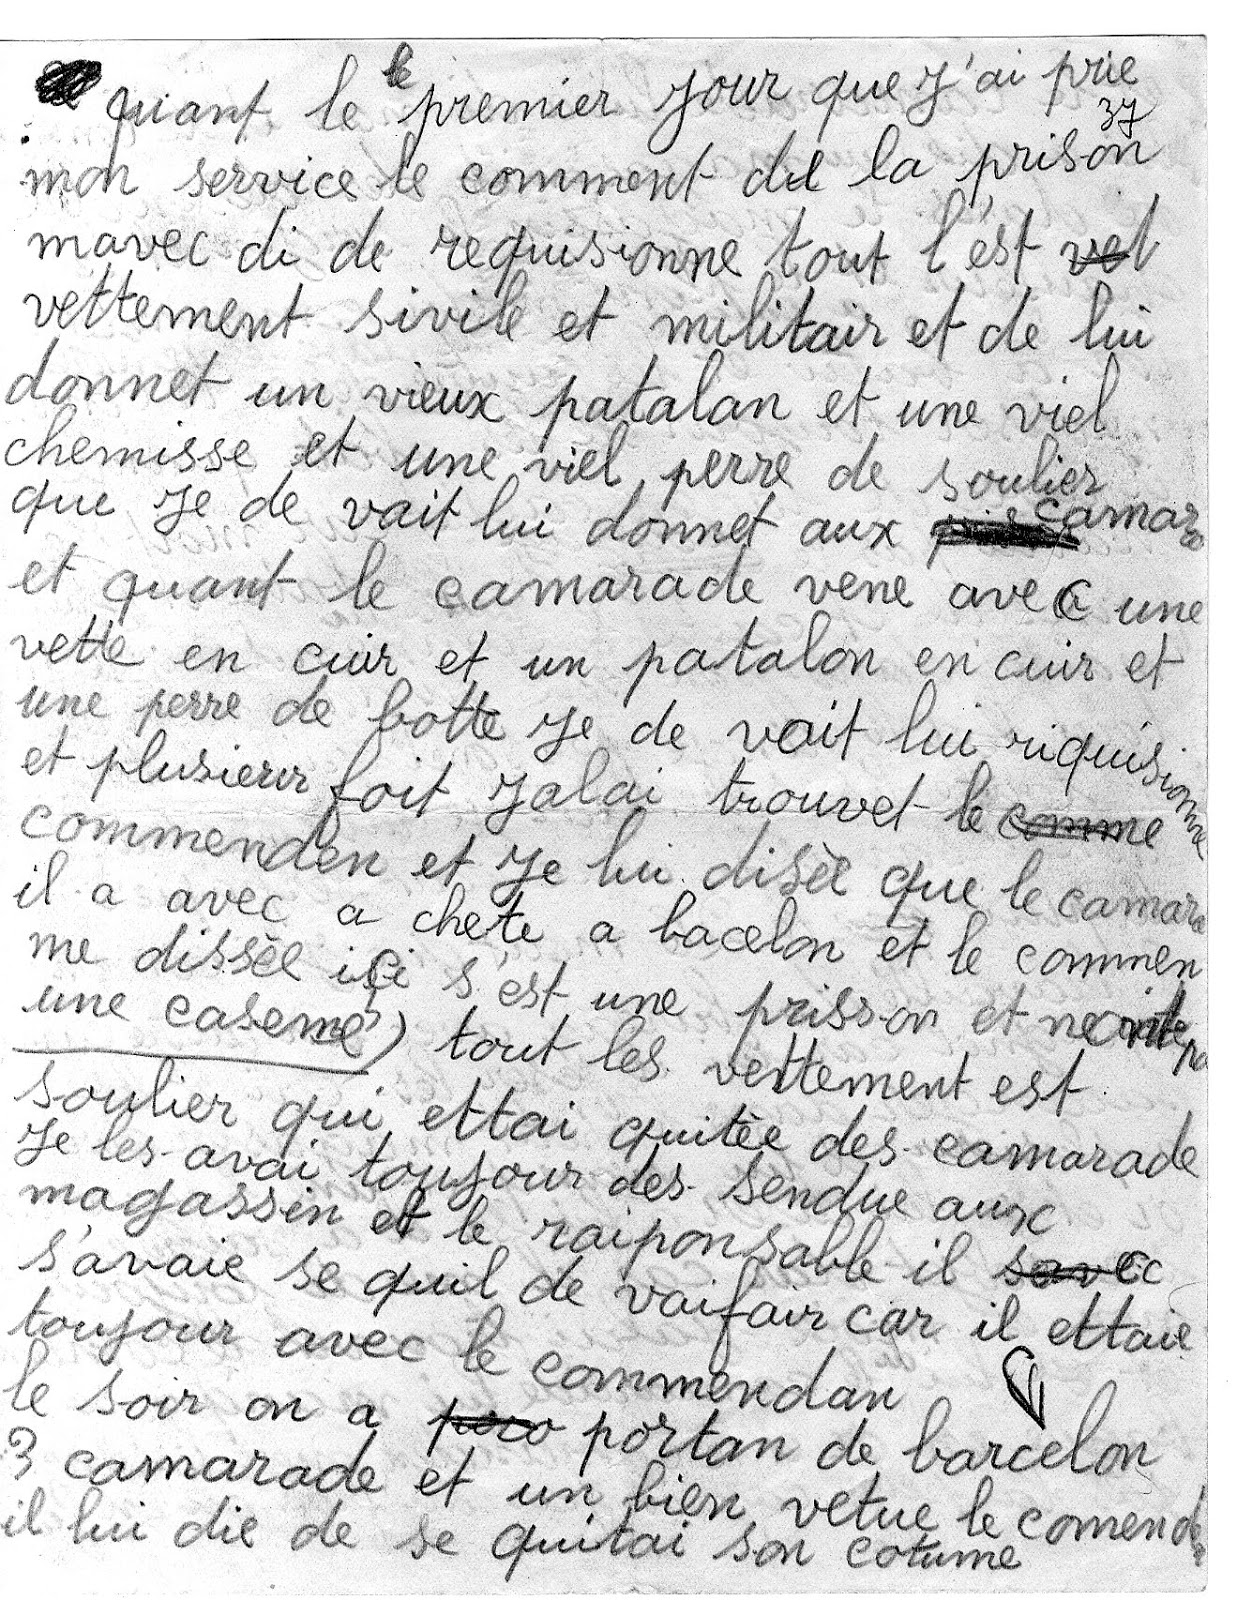 quant le le premier jour que j'ai prie
37
mon service le comment del la prison
mavec di de requisionne tout l'est vet
vettement sivile et militair et de lui
donnet un vieux patalan et une viel
chemisse et une viel perre de soulier
que je de vait lui donnet aux camara
et quant le camarade vene avec une
vette en cuir et un patalon en cuir et
une perre de botte je de vait lui riquisionne
et plusieur foit jalai trouvet le comme
commenden et je lui disèe que le camara
il a avec a chete a bacelon et le commen
me dissèe ici s'est une prisson et ne pa
une caserne) tout les vettement est
soulier qui ettai quitèe des camarade
je les avai toujour des sendue aux
magassin et le raiponsable il savec
s'avaie se quil de vaifair car il ettaie
toujour avec le commendan
le soir on a portan de barcelon
3 camarade et un bien vetue le comenda
il lui die de se quitai son cotume